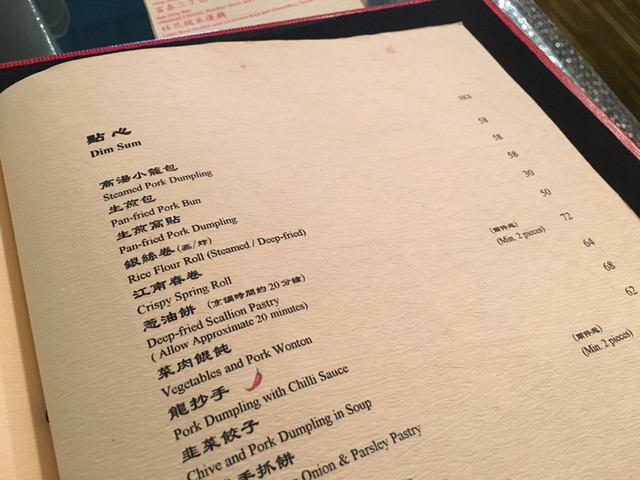 點心
Dim Sum
HK$
高湯小籠包 58
Steamed Pork Dumpling
生煎包 58
Pan-fried Pork Bun
生煎窩貼 58
Pan-fried Pork Dumpling
銀絲卷 (蒸/炸) 30
Rice Flour Roll (Steamed / Deep-fried)
江南春卷 50
Crispy Spring Roll
葱油餅 (烹調時間約20分鐘) (兩件起) 72
Deep-fried Scallion Pastry (Min. 2 pieces)
( Allow Approximate 20 minutes)
菜肉餛飩 64
Vegetables and Pork Wonton
龍抄手 68
Pork Dumpling with Chilli Sauce
韭菜餃子 62
Chive and Pork Dumpling in Soup
手抓餅 (兩件起)
Onion & Parsley Pastry (Min. 2 pieces)